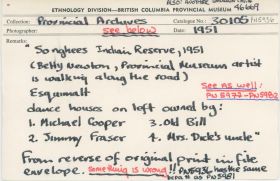 ALSO: ANOTHER
ETHNOLOGY DIVISION—BRITISH COLUMBIA PROVINCIAL MUSEUM
46669
Collection: Provincial Archives Catalogue No.: 30105 PN5936
Photographer: see below Date: 1951
Remarks:
"Songhees Indian Reserve, 1951
(Betty Newton, Provincial Museum artist
is walking along the road)
See AS well:
PN 5972-PN 5982
Esquimalt
dance houses on left owned by:
1. Michael Cooper 3. Old Bill
2. Jimmy Fraser 4. Mrs. Dick's uncle"
From reverse of original print in file
envelope. something is wrong!! PN5936 has the same
as PN5981